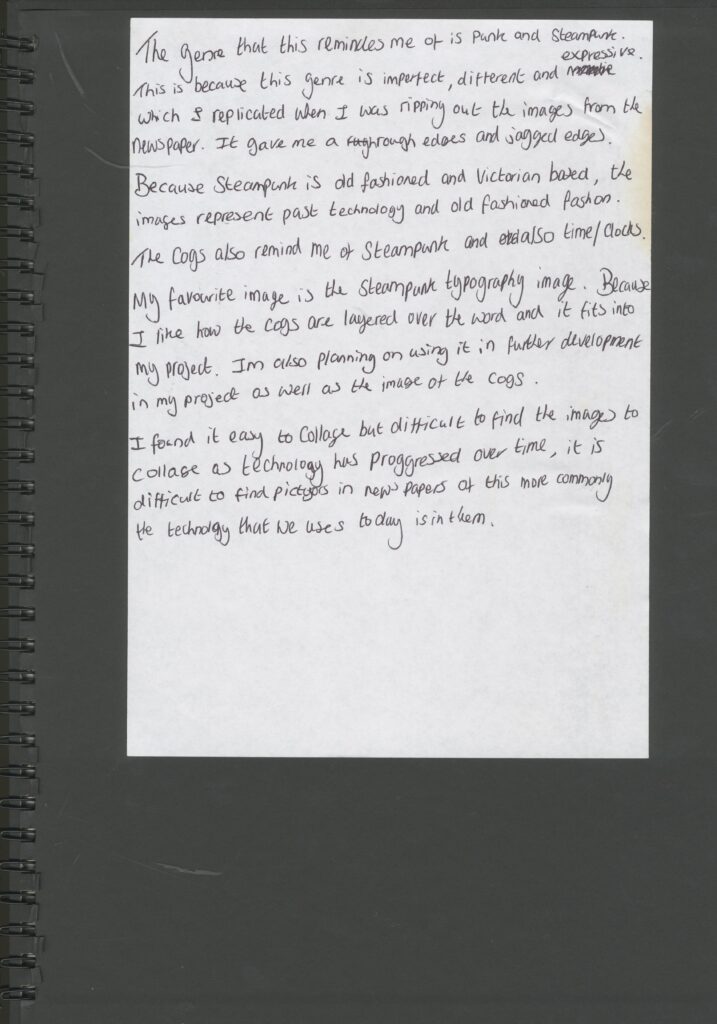 The genre that this remindes me of is Punk and Steampunk.
This is because this genre is imperfect, different and expressive.
which I replicated when I was ripping out the images from the
newspaper. It gave me a rough edges and jagged edges.
Because Steampunk is old fashioned and Victorian based, the
images represent past technology and old fashioned fashon.
The Cogs also remind me of Steampunk and also time/Clocks.
My favourite image is the Steampunk typography image. Because
I like how the cogs are layered over the word and it fits into
my project. Im also planning on using it in further development
in my project as well as the image of the cogs.
I found it easy to Collage but difficult to find the images to
collage as technology has proggressed over time, it is
difficult to find in news papers of this more commonly
the technolgy that we uses today is in them.